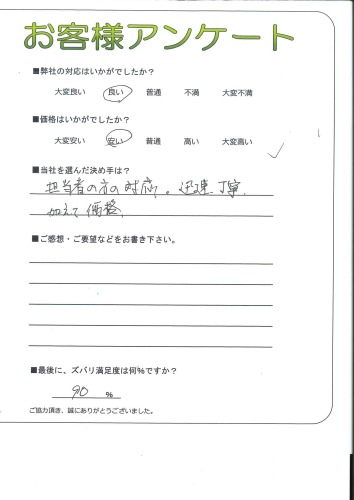 お客様アンケート
■弊社の対応はいかがでしたか？
大変良い 良い 普通 不満 大変不満
■価格はいかがでしたか？
大変安い 安い 普通 高い 大変高い
■当社を選んだ決め手は？
担当者の方の対応。迅速 丁寧
加えて価格
■ご感想・ご要望などをお書き下さい。
■最後に、ズバリ満足度は何％ですか？
90 %
ご協力頂き、誠にありがとうございました。